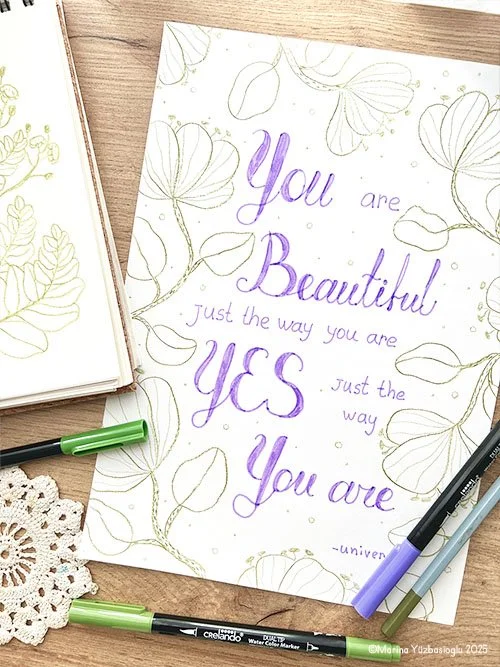 You are
Beautiful
just the way you are
YES just the
way
You are
-univer
CRELANDO DUAL TIP
Water Color Marker
©Marina Yüzbasioglu 2025